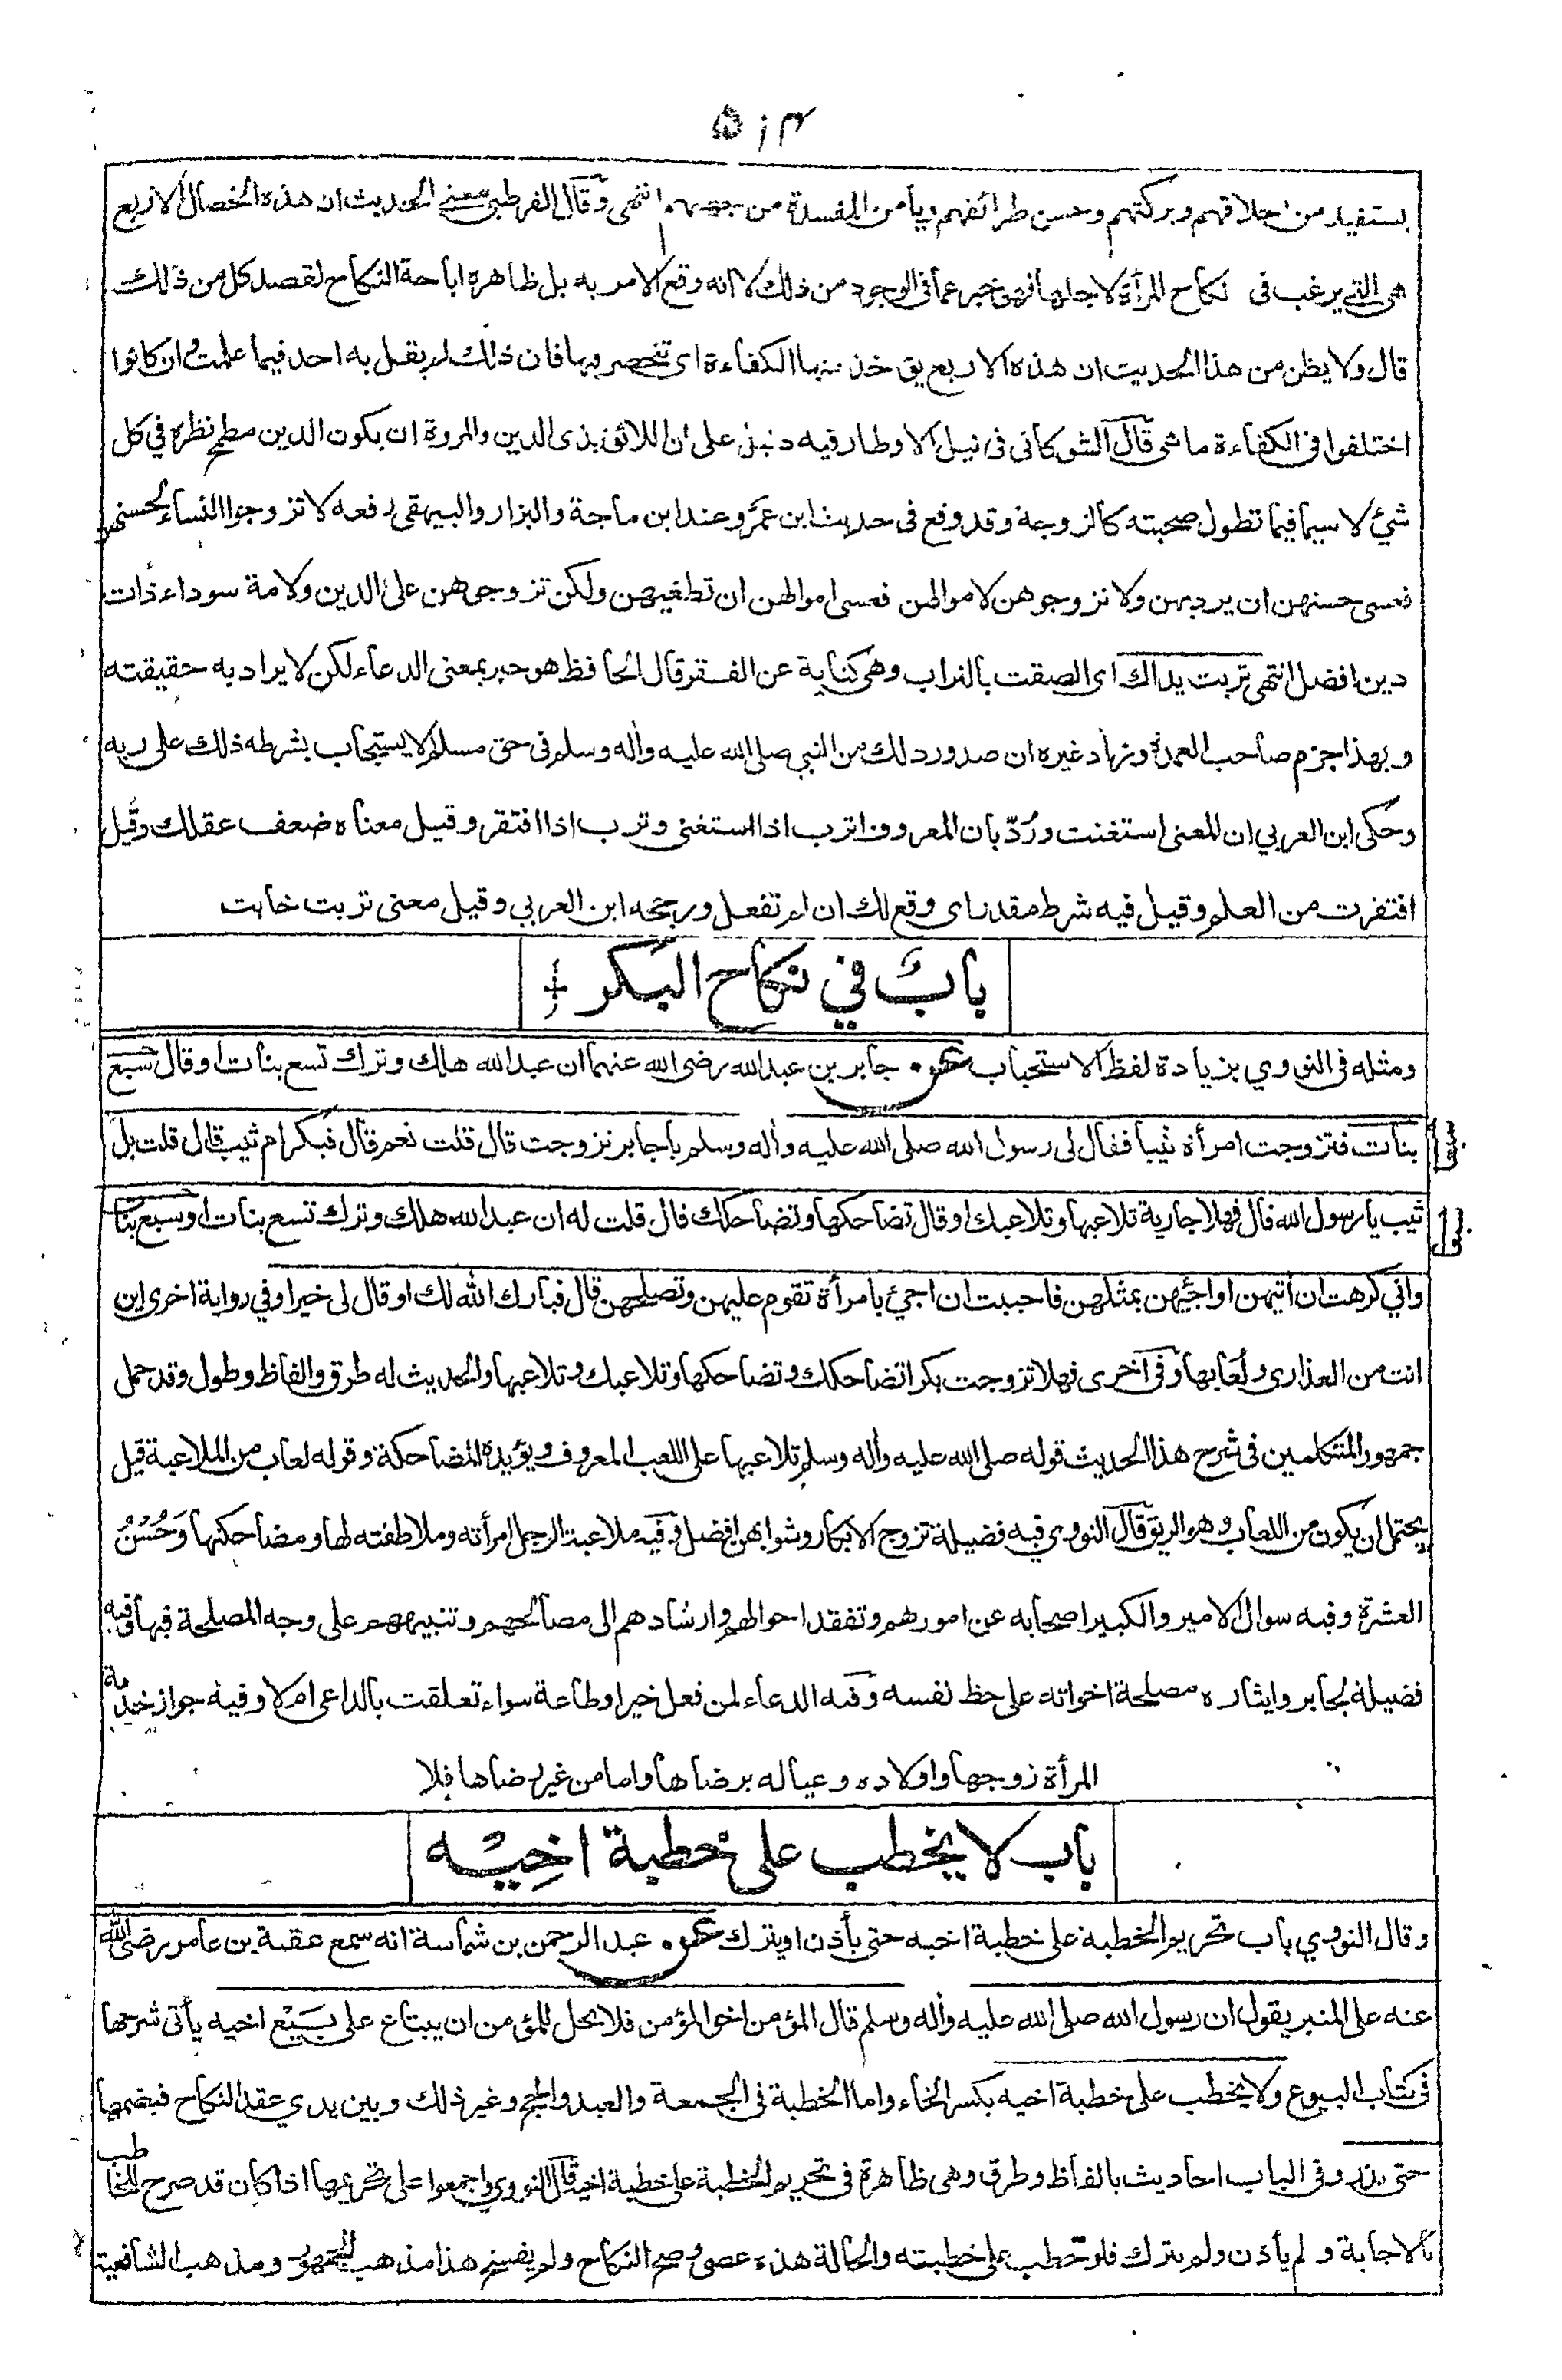 ٥٠٣
يستفيد من اخلاقهم وبركتهم وحسن طرائقهم ويأمن المفسدة من جهتهم انتهى وقال القرطبي معنى الحديث ان هذه الخصال الاربع
هي التي يرغب فى نكاح المرأة لاجلها فهو خبر عما فى الوجود من ذلك لا انه وقع الامر به بل ظاهره اباحة النكاح لقصد كل من ذلك
قال ولا يظن من هذا الحديث ان هذه الاربع يؤخذ منها الكفاءة اى تنحصر فيها فان ذلك لم يقل به احد فيما علمت وان كانوا
اختلفوا فى الكفاءة ما هى قال الشوكانى فى نيل الاوطار فيه دليل على ان اللائق بذى الدين والمروة ان يكون الدين مطمح نظره في كل
شيء لا سيما فيما تطول صحبته كالزوجة وقد وقع فى حديث ابن عمرو عند ابن ماجة والبزار والبيهقي رفعه لا تزوجوا النساء لحسنهن
فعسى حسنهن ان يرديهن ولا تزوجوهن لاموالهن فعسى اموالهن ان تطغيهن ولكن تزوجوهن على الدين ولامة سوداء ذات
دين افضل انتهى تربت يداك اى الصقت بالتراب وهى كناية عن الفقر قال الحافظ هو خبر بمعنى الدعاء لكن لا يراد به حقيقته
وبهذا جزم صاحب العمدة وزاد غيره ان صدور ذلك من النبي صلى الله عليه واله وسلم فى حق مسلم لا يستجاب بشرطه ذلك على ربه
وحكى ابن العربي ان المعنى استغنت ورُدّ بان المعروف اترب اذا استغنى وترب اذا افتقر وقيل معناه ضعف عقلك وقيل
افتقرت من العلم وقيل فيه شرط مقدر اى وقع لك ان لم تفعل ورجحه ابن العربي وقيل معنى تربت خابت
باب في نكاح البكر
ومثله فى النووي بزيادة لفظ الاستحباب عن جابر بن عبد الله رضى الله عنهما ان عبد الله هلك وترك تسع بنات او قال سبع
بنات فتزوجت امرأة ثيبا فقال لى رسول الله صلى الله عليه واله وسلم يا جابر تزوجت قال قلت نعم قال فبكر ام ثيب قال قلت بل
سبعا
ثيب يا رسول الله قال فهلا جارية تلاعبها وتلاعبك او قال تضاحكها وتضاحكك قال قلت له ان عبد الله هلك وترك تسع بنات او سبع بنات
واني كرهت ان أتيهن او اجيئهن بمثلهن فاحببت ان اجيئ بامرأة تقوم عليهن وتصلحهن قال فبارك الله لك او قال لى خيرا وفي رواية اخرى اين
انت من العذارى ولعابها وفى اخرى فهلا تزوجت بكرا تضاحكك وتضاحكها وتلاعبك وتلاعبها والحديث له طرق والفاظ وطول وقد حمل
جمهور المتكلمين فى شرح هذا الحديث قوله صلى الله عليه واله وسلم تلاعبها على اللعب المعروف ويؤيده المضاحكة وقوله لعاب من الملاعبة قيل
يحتمل ان يكون من اللعاب وهو الريق قال النووي فيه فضيلة تزوج الابكار وثوابهن افضل وفيه ملاعبة الرجل امرأته وملاطفته لها ومضاحكتها وَحُسْنُ
العشرة وفيه سوال الامير والكبير اصحابه عن امورهم وتفقد احوالهم وارشادهم الى مصالحهم وتنبيههم على وجه المصلحة فيها وفيه
فضيلة لجابر وايثاره مصلحة اخواته على حظ نفسه وفيه الدعاء لمن فعل خيرا وطاعة سواء تعلقت بالداعى ام لا وفيه جواز خدمة
المرأة زوجها واولاده وعياله برضاها واما من غير رضاها فلا
باب لا يخطب على خطبة اخِيْه
وقال النووي باب تحريم الخطبة على خطبة اخيه حتى يأذن او يترك عن عبد الرحمن بن شماسة انه سمع عقبة بن عامر رضى الله
عنه على المنبر يقول ان رسول الله صلى الله عليه واله وسلم قال المؤمن اخو المؤمن فلا يحل للمؤمن ان يبتاع على بَيْع اخيه يأتى شرحها
فى كتاب البيوع ولا يخطب على خطبة اخيه بكسر الخاء واما الخطبة فى الجمعة والعيد والحج وغير ذلك وبين يدي عقد النكاح فبضمها
حتى يذر وفى الباب احاديث بالفاظ وطرق وهى ظاهرة فى تحريم الخطبة على خطبة اخيه قال النووي واجمعوا على تحريمها اذا كان قد صرح للخاطب
بالاجابة ولم يأذن ولم يترك فلو خطب على خطبته والحالة هذه عصى وصح النكاح ولم يفسخ هذا مذهب الجمهور ومذهب الشافعية